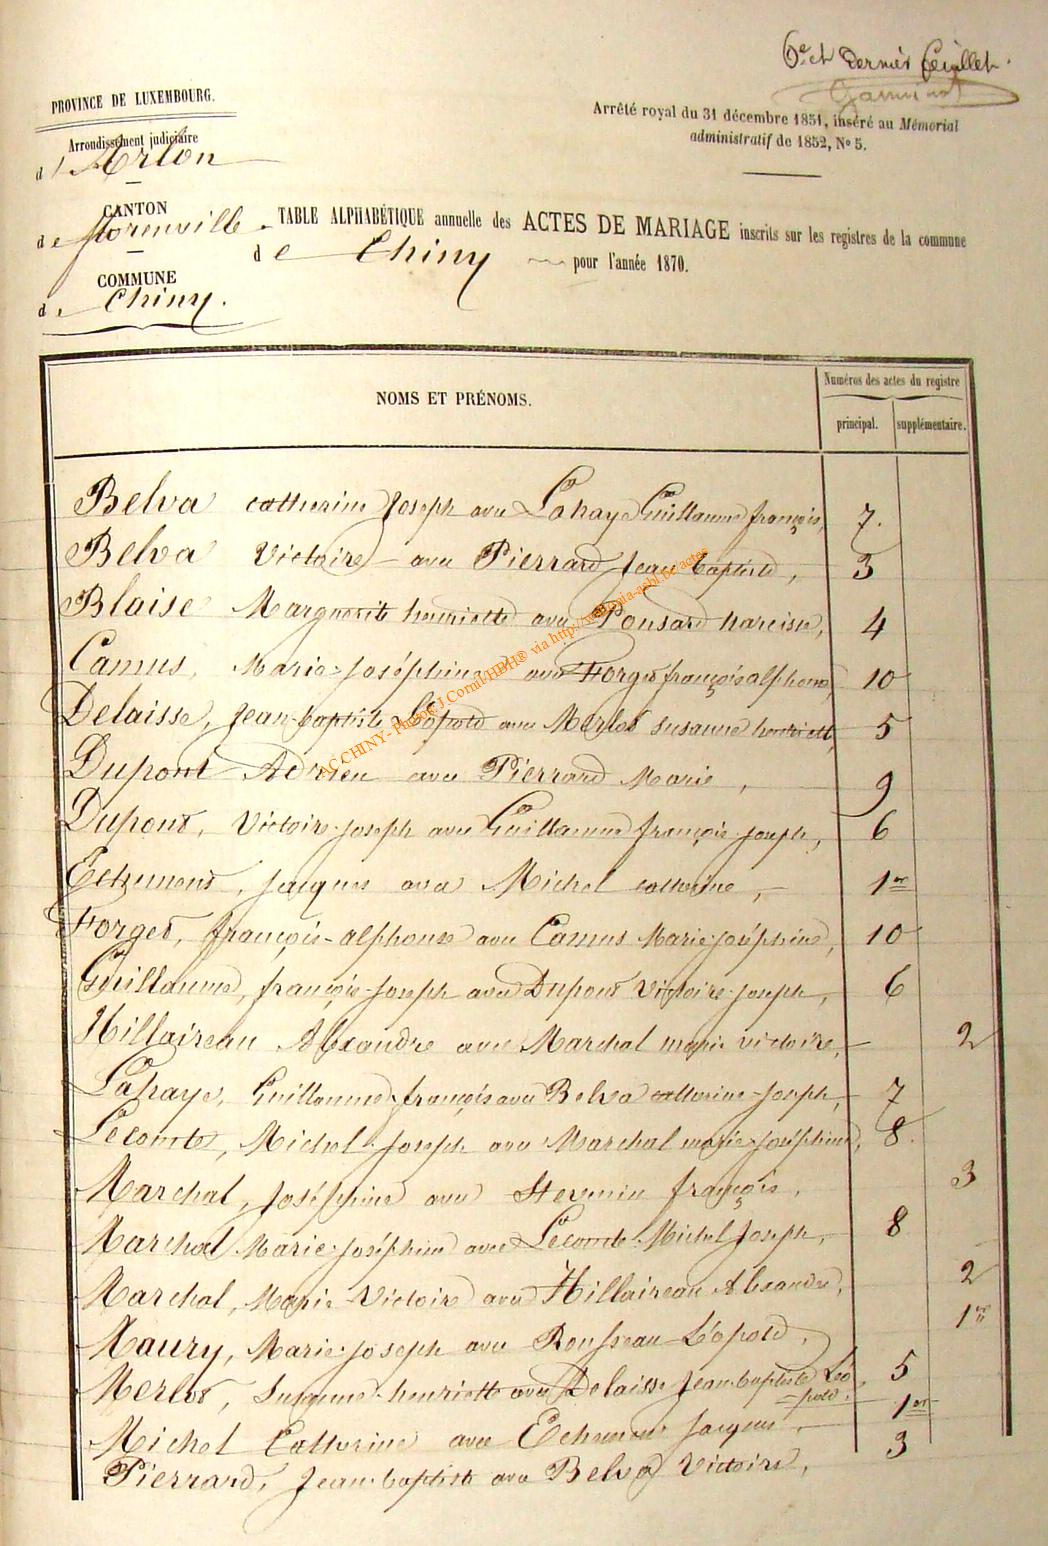 6e et dernier feuillet.
PROVINCE DE LUXEMBOURG.
Arrêté royal du 31 décembre 1851, inséré au Mémorial
administratif de 1852, No 5.
Arrondissement judiciaire
d'Arlon
CANTON
de florenville
TABLE ALPHABÉTIQUE annuelle des ACTES DE MARIAGE inscrits sur les registres de la commune
de Chiny pour l'année 1870.
COMMUNE
de Chiny.
NOMS ET PRÉNOMS.
Numéros des actes du registre
principal. supplémentaire.
Belva catherine Joseph avec Lahaye Guillaume françois, 7.
Belva Victoire avec Pierrard Jean baptiste, 3
Blaise Marguerite henriette avec Ponsard narcisse, 4
Camus, Marie-Joséphine avec Forget françois alphonse, 10
Delaisse, Jean-baptiste Léopold avec Merlot susanne henriette, 5
Dupont Adrien avec Pierrard Marie, 9
Dupont, Victoire-joseph avec Guillaume françois-joseph, 6
Jacques avec Michel catherine, 1er
Forget, françois-alphonse avec Camus Marie-joséphine, 10
Guillaume, françois-Joseph avec Dupont Victoire-joseph, 6
Hillaireau Alexandre avec Marchal marie victoire, 2
Lahaye, Guillaume-françois avec Belva catherine-Joseph, 7
Lecomte, Michel-Joseph avec Marchal marie-joséphine, 8.
Marchal, Joséphine avec françois, 3
Marchal Marie-Joséphine avec Lecomte Michel Joseph, 8
Marchal, Marie-Victoire avec Hillaireau Alexandre, 2
Maury, Marie-Joseph avec Rousseau Léopold, 1er
Merlot, Susanne-henriette avec Delaisse Jean-baptiste Léo
-pold. 5
Michel Catherine avec Jacques, 1er
Pierrard, Jean-baptiste avec Belva Victoire, 3
AC CHINY - Photos J Cornil/HBH® via http://webtonia-asbl.be actes